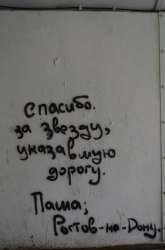 Спасибо.
за звезду,
указавшую
дорогу.
Паша;
Ростов-на-Дону.